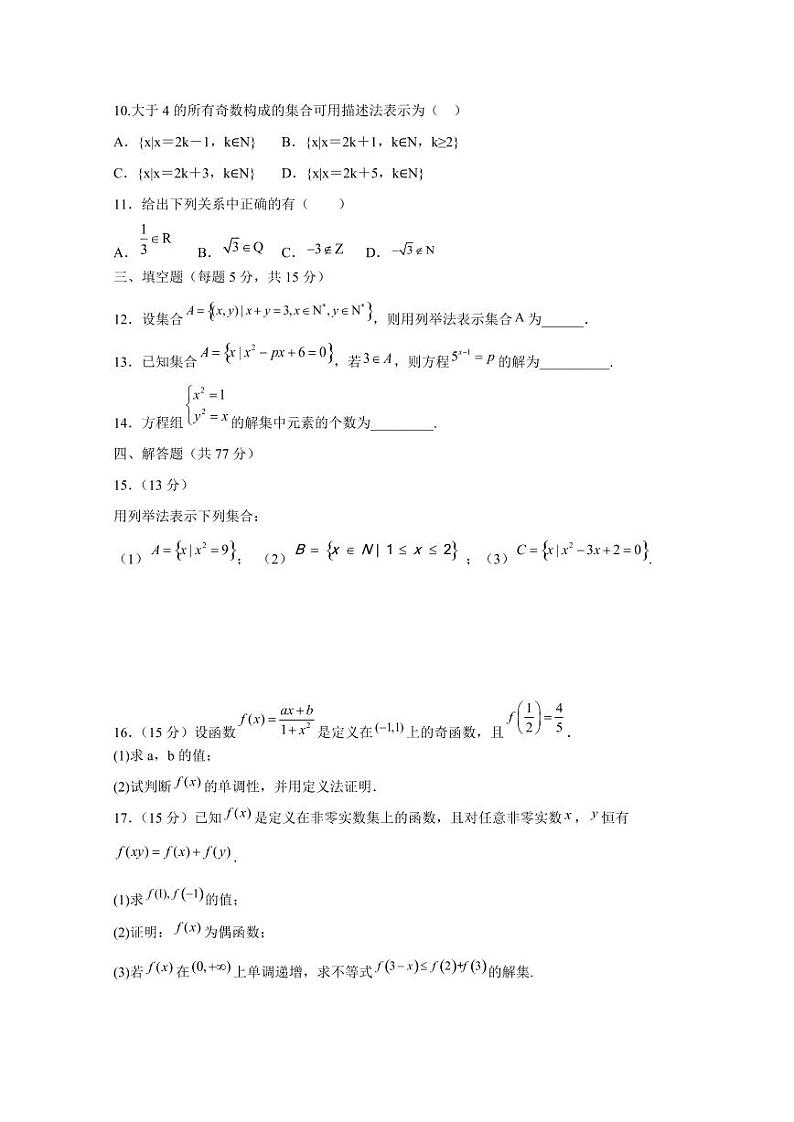 10.大于 4 的所有奇数构成的集合可用描述法表示为（　）
A．{x|x＝2k－1，k∈N}　B．{x|x＝2k＋1，k∈N，k≥2}
C．{x|x＝2k＋3，k∈N}　D．{x|x＝2k＋5，k∈N}
11．给出下列关系中正确的有（　　）
A．1/3∈R　B．√3∈Q　C．−3∉Z　D．−√3∉N
三、填空题（每题 5 分，共 15 分）
12．设集合 A={(x,y)|x+y=3,x∈N*,y∈N*}，则用列举法表示集合 A 为______．
13．已知集合 A={x|x²−px+6=0}，若 3∈A，则方程 5^(x−1)=p 的解为__________.
14．方程组 {x²=1 y²=x 的解集中元素的个数为_________.
四、解答题（共 77 分）
15．（13 分）
用列举法表示下列集合：
（1）A={x|x²=9}；（2）B={x∈N|1≤x≤2}；（3）C={x|x²−3x+2=0}.
16．（15 分）设函数 f(x)=(ax+b)/(1+x²) 是定义在(−1,1)上的奇函数，且 f(1/2)=4/5．
(1)求 a，b 的值；
(2)试判断 f(x) 的单调性，并用定义法证明．
17．（15 分）已知 f(x) 是定义在非零实数集上的函数，且对任意非零实数 x，y 恒有
f(xy)=f(x)+f(y)．
(1)求 f(1),f(−1)的值；
(2)证明：f(x) 为偶函数；
(3)若 f(x) 在(0,+∞)上单调递增，求不等式 f(3−x)≤f(2)+f(3)的解集.